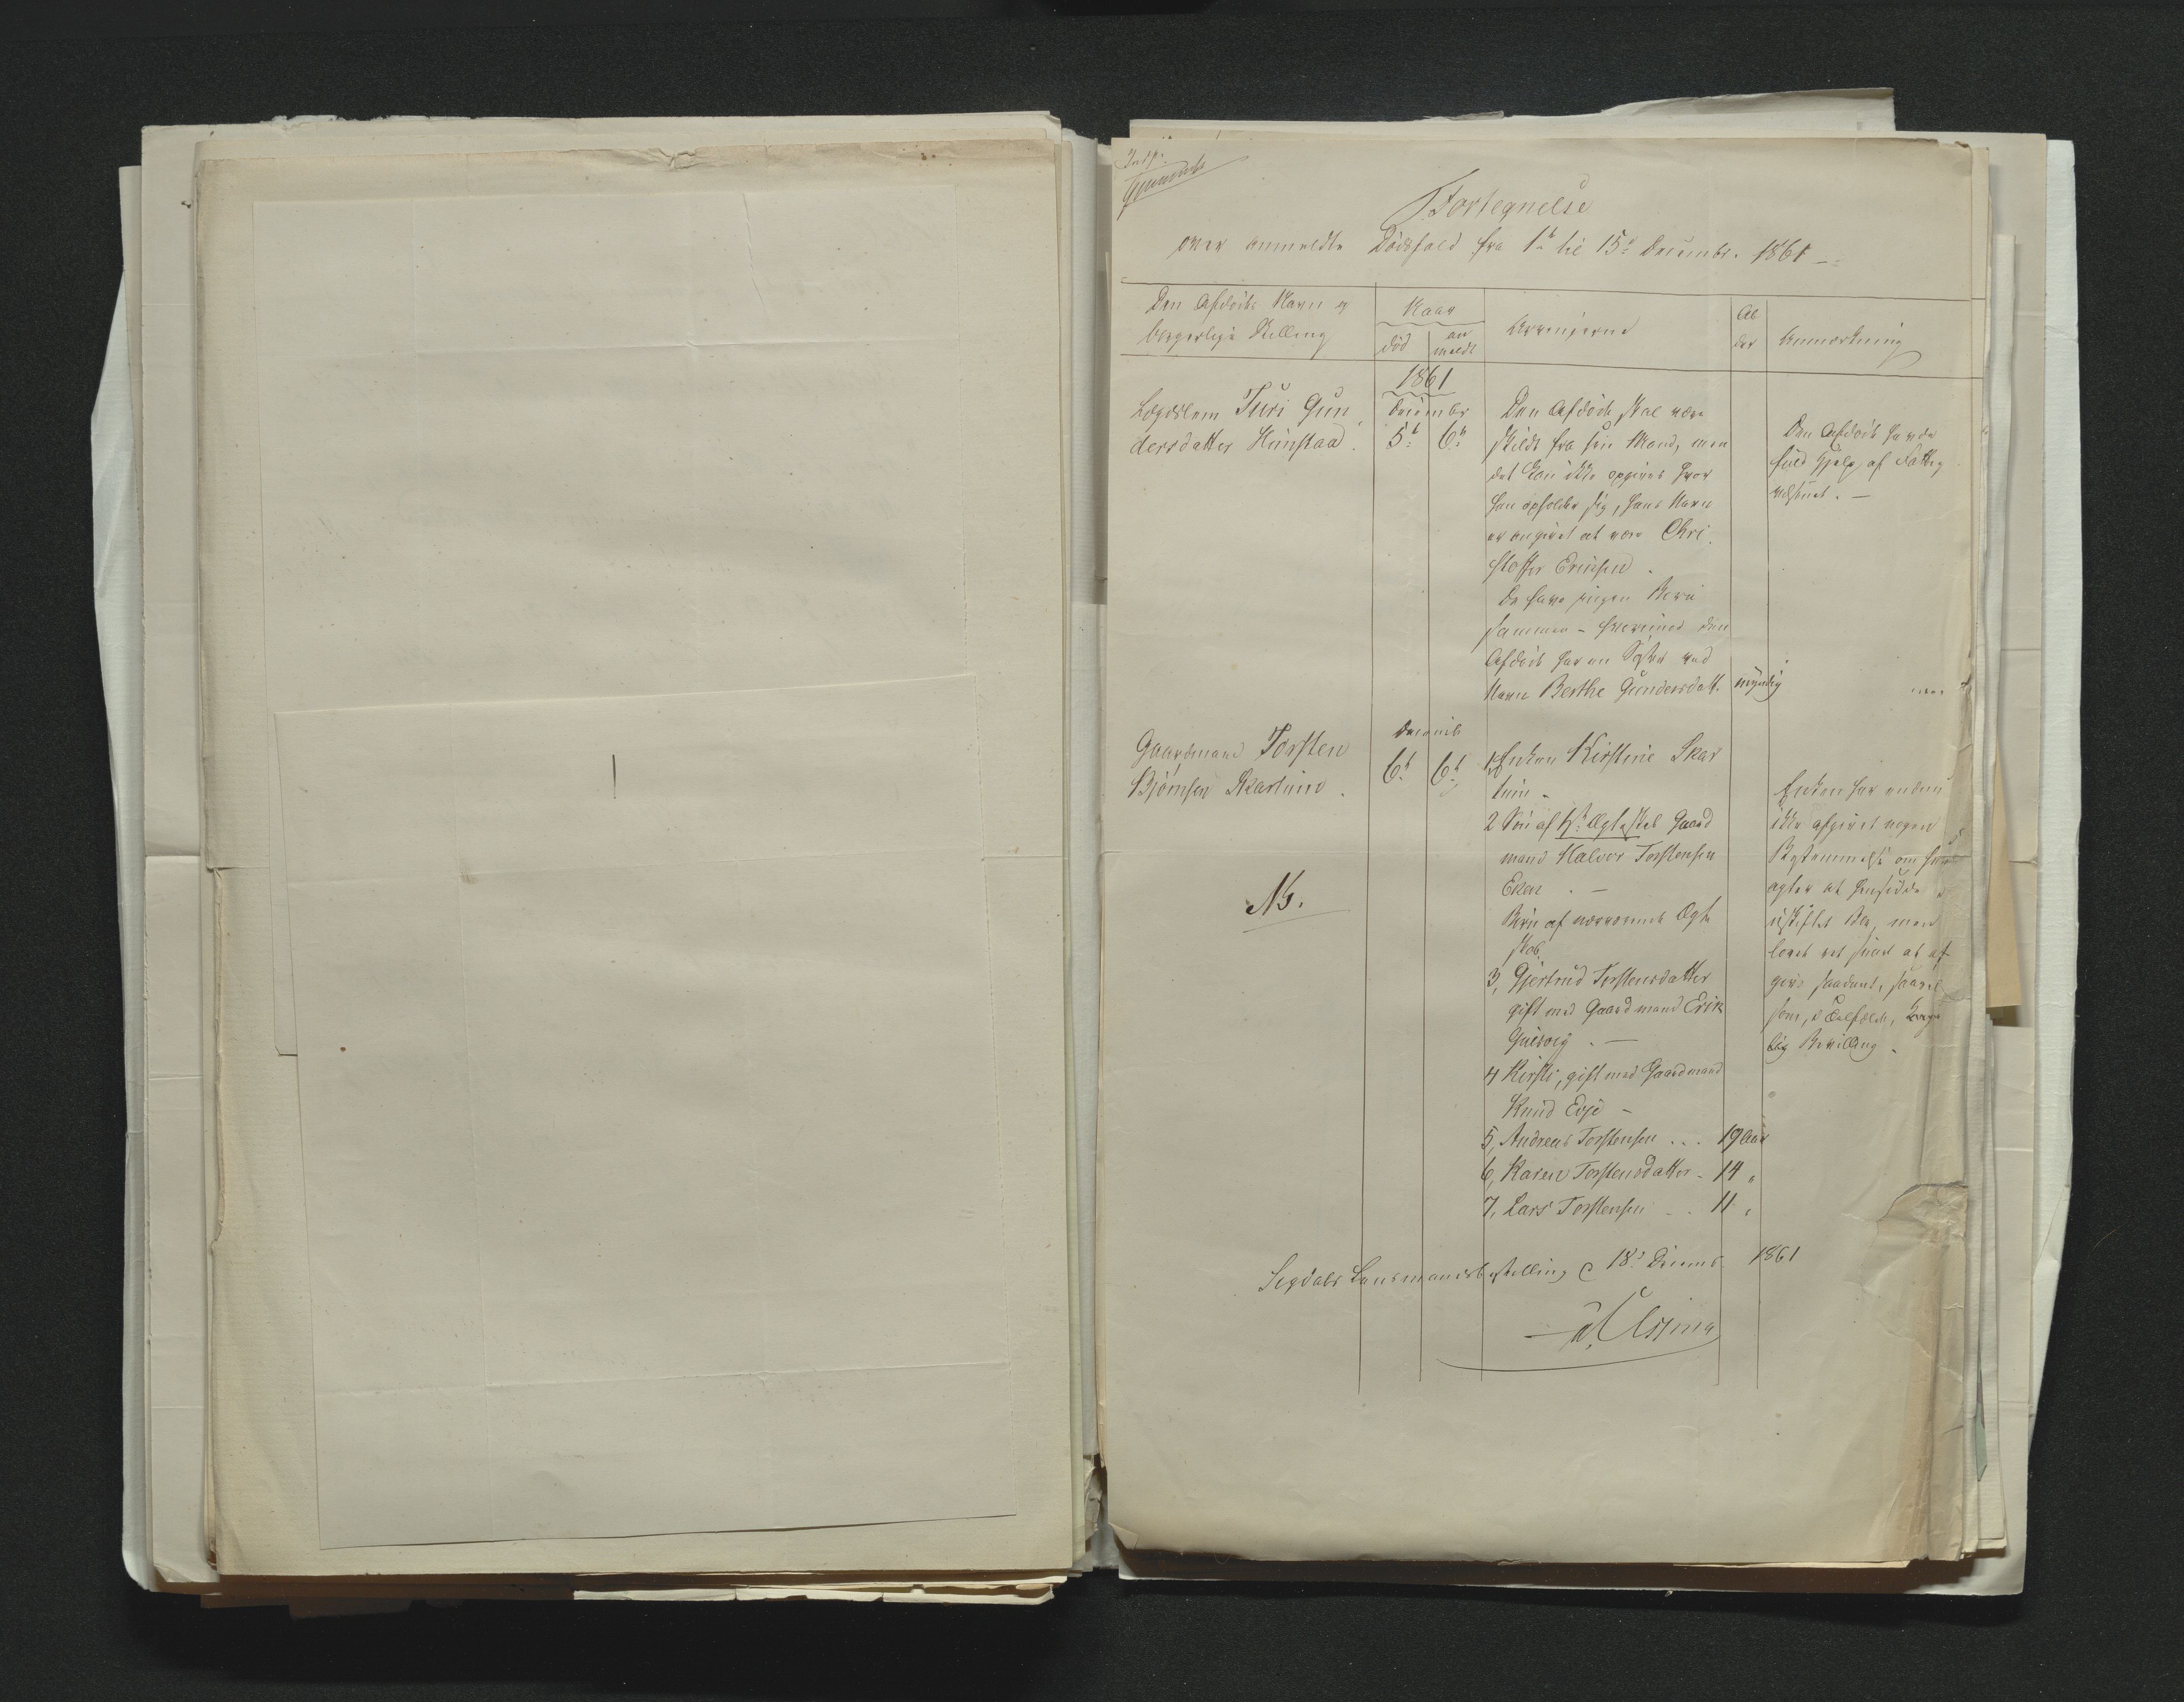 Fortegnelse
over anmeldte Dødsfald fra 1te til 15de Decembr. 1861
Den Afdødes Navn og
borgerlige Stilling
Naar
død
an
meldt
Arvingerne
Al
der
Anmærkning
1861
Lægdslem Turi Gun
dersdatter Hunstad.
Decembr
5te 6te
Den Afdøde skal være
skildt fra sin Mand, men
det kan ikke opgives hvor
han opholder sig, hans Navn
er angivet at være Chri
stoffer Erichsen.
De have ingen Børn
sammen – hvorimod den
Afdøde har en Søster ved
Navn Berthe Gundersdatt.
myndig
Den Afdøde havde
fuld Hjelp af Fattig
væsenet. –
Gaardmand Torsten
Bjørnsen Skartum.
NB.
Decemb
6te 6te
1 Enken Kirstine Skar
tum –
2 Søn af 1ste Ægteskab Gaard
mand Halvor Torstensen
Eken . –
Børn af nærværende Ægte
skab
3, Gjertrud Torstensdatter
gift med Gaardmand Erik
4 Kirsti, gift med Gaardmand
Knud Evje –
5, Andreas Torstensen ... 19 Aar
6, Karen Torstensdatter - 14 "
7, Lars Torstensen .. 11 "
Enken har endnu
ikke afgivet nogen
Bestemmelse om hun
agter at hensidde i
uskiftet Bo, men
lovet ved at af
give saadant, saavel
som, i Tilfælde, Konge
lig Bevilling.
Sigdals Lensmandsbestilling d 18de Decemb 1861